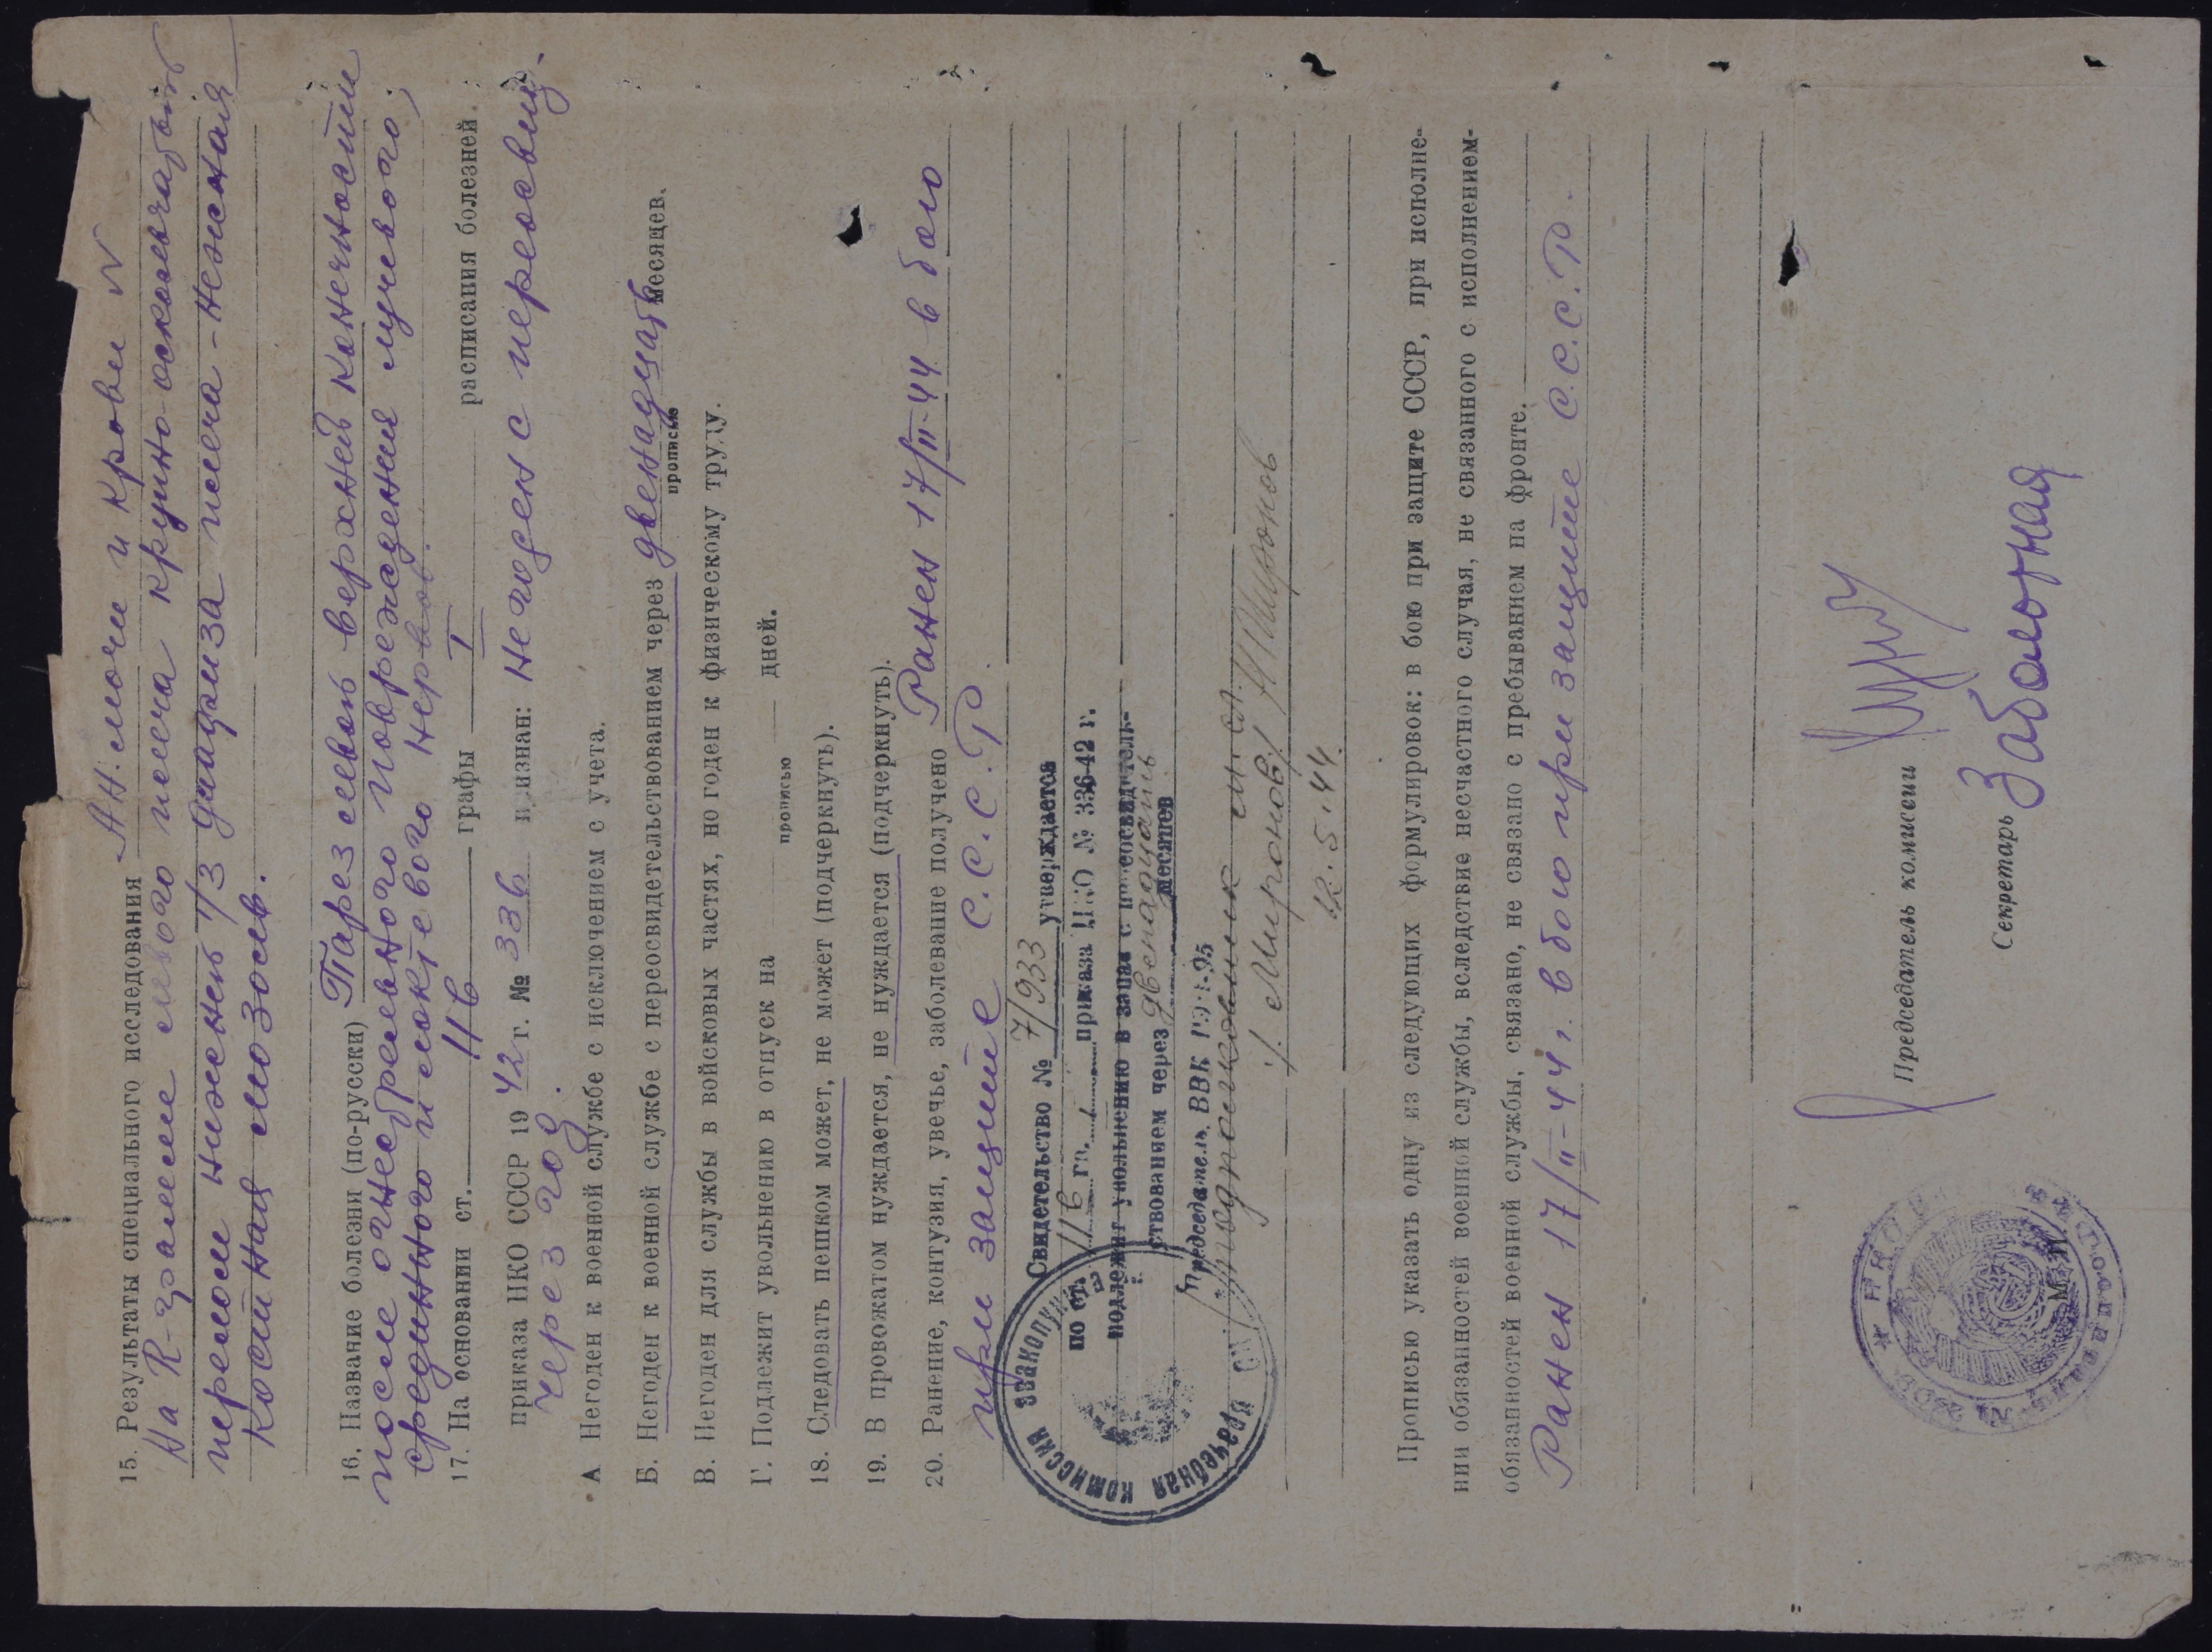 15. Результаты специального исследования Ан. мочи и крови N
На R-грамме левого плеча крупно-оскольчатый
перелом нижней 1/3 диафиза плеча - нежная
костная мозоль.
16. Название болезни (по-русски) Парез левой верхней конечности
после огнестрельного повреждения лучевого,
срединного и локтевого нервов.
17. На основании ст. 11в графы I расписания болезней
приказа НКО СССР 1942 г. № 336 признан: Негоден с переосвид.
через год.
А Негоден к военной службе с исключением с учета.
Б. Негоден к военной службе с переосвидетельствованием через двенадцать месяцев.
прописью
В. Негоден для службы в войсковых частях, но годен к физическому труду.
Г. Подлежит увольнению в отпуск на дней.
прописью
18. Следовать пешком может, не может (подчеркнуть).
19. В провожатом нуждается, не нуждается (подчеркнуть).
20. Ранение, контузия, увечье, заболевание получено Ранен 17/II-44 в бою
при защите С.С.С.Р.
Свидетельство № 7/933 утверждается
по ст. 11б гр. I приказа НКО № 336-42 г.
подлежит увольнению в запас с переосвидетель-
ствованием через двенадцать месяцев
Председатель ВВК
Подполковник м/сл.
/Миронов/
12.5.44.
врачебная комиссия
Прописью указать одну из следующих формулировок: в бою при защите СССР, при исполне-
нии обязанностей военной службы, вследствие несчастного случая, не связанного с исполнением
обязанностей военной службы, связано, не связано с пребыванием на фронте.
Ранен 17/II-44 г. в бою при защите С.С.С.Р.
Председатель комиссии
Секретарь Заболотная
М. П.